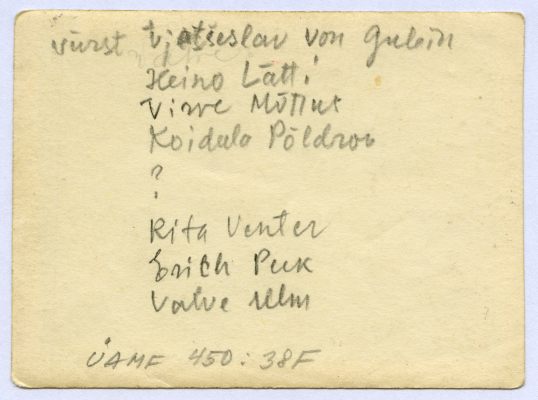 vürst Vjatšeslav von Gulein
Heino Lätti
Virve Mõttus
Koidula Põldroo
?
Rita Venter
Erich Peek
Valve Ulm
ÜAMF 450:38F